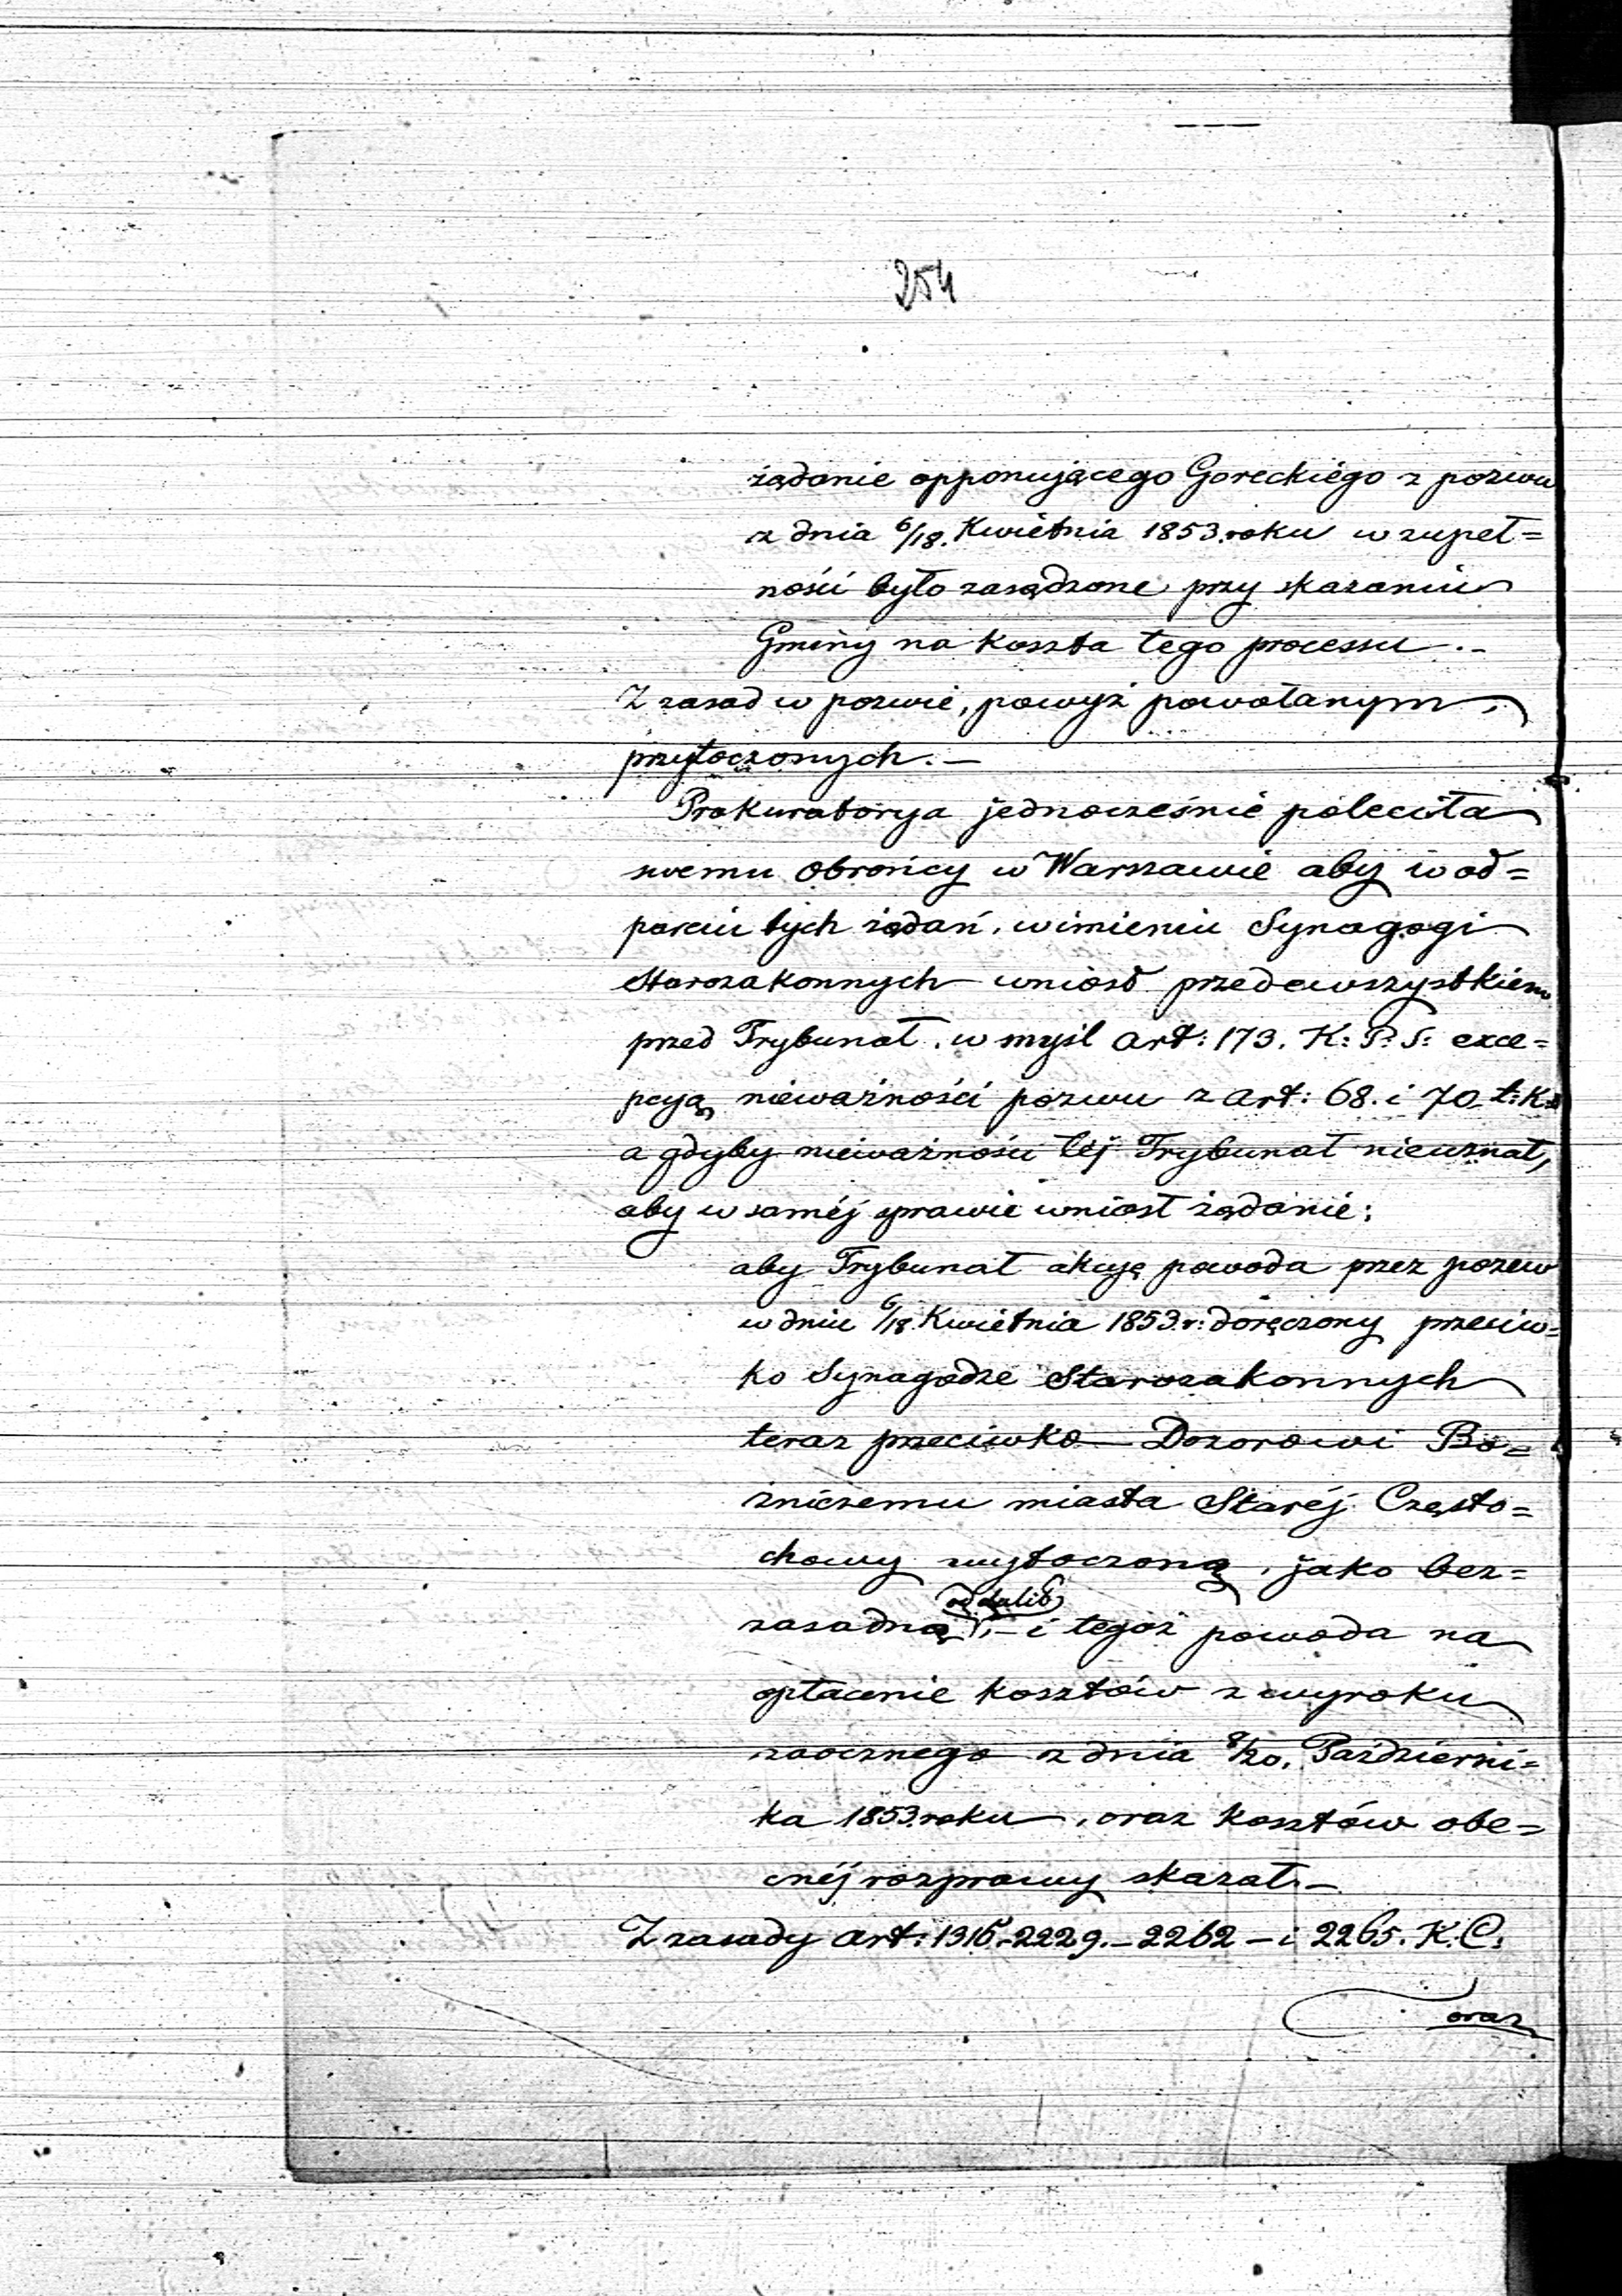 254
żądanie opponującego Goreckiégo z pozwu
z dnia 6/18. Kwietnia 1853. roku w zupeł=
ności było zasądzone przy skazaniu
Gminy na koszta tego processu.-
Z zasad w pozwie, powyż powołanym,
przytoczonych.-
Prokuratorya jednocześnie poleciła
swemu Obrońcy w Warszawie aby w od=
parciu tych żądań, w imieniu Synagogi
Starozakonnych wniosł przedewszystkiem
przed Trybunał, w myśl art: 173. K: P: S: exce=
pcyą nieważności pozwu z art: 68. i 70. t: K:
a gdyby nieważności téj Trybunał nieuznał,
aby w saméj sprawie wniosł żądanie:
aby Trybunał akcyę powoda przez pozew
w dniu 6/18. Kwietnia 1853. r: doręczony przeciw=
ko Synagodze Starozakonnych
teraz przeciwko Dozorowi Bo=
żniczemu miasta Staréj Często=
chowy wytoczoną, jako bez=
zasadną oddalił,- i tegoż powoda na
opłacenie kosztów z wyroku
zaocznego z dnia 8/20. Październi=
ka 1853. roku, oraz kosztów obe=
cnéj rozprawy skazał.-
Z zasady art: 1315.-2229.-2262-i 2265. K. C.
oraz